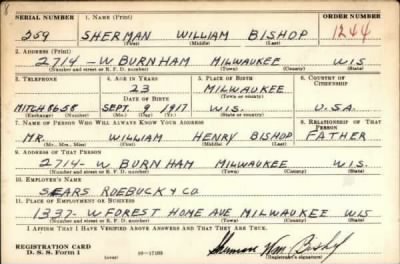 SERIAL NUMBER 1. NAME (Print) ORDER NUMBER
259 SHERMAN WILLIAM BISHOP 1244
(First) (Middle) (Last)
2. ADDRESS (Print)
2714 - W BURNHAM MILWAUKEE WIS
(Number and street or R. F. D. number) (Town) (County) (State)
3. TELEPHONE 4. AGE IN YEARS 5. PLACE OF BIRTH 6. COUNTRY OF CITIZENSHIP
23 MILWAUKEE
DATE OF BIRTH (Town or county)
MITCH 8658 SEPT. 9 1917 WIS. U.S.A.
(Exchange) (Number) (Mo.) (Day) (Yr.) (State or country)
7. NAME OF PERSON WHO WILL ALWAYS KNOW YOUR ADDRESS 8. RELATIONSHIP OF THAT PERSON
MR. WILLIAM HENRY BISHOP FATHER
(Mr., Mrs., Miss) (First) (Middle) (Last)
9. ADDRESS OF THAT PERSON
2714 - W BURNHAM MILWAUKEE WIS.
(Number and street or R. F. D. number) (Town) (County) (State)
10. EMPLOYER'S NAME
SEARS ROEBUCK & CO.
11. PLACE OF EMPLOYMENT OR BUSINESS
1337 - W FOREST HOME AVE MILWAUKEE WIS
(Number and street or R. F. D. number) (Town) (County) (State)
I AFFIRM THAT I HAVE VERIFIED ABOVE ANSWERS AND THAT THEY ARE TRUE.
REGISTRATION CARD
D. S. S. Form 1 16-17105 Sherman Wm. Bishop
(over) (Registrant's signature)